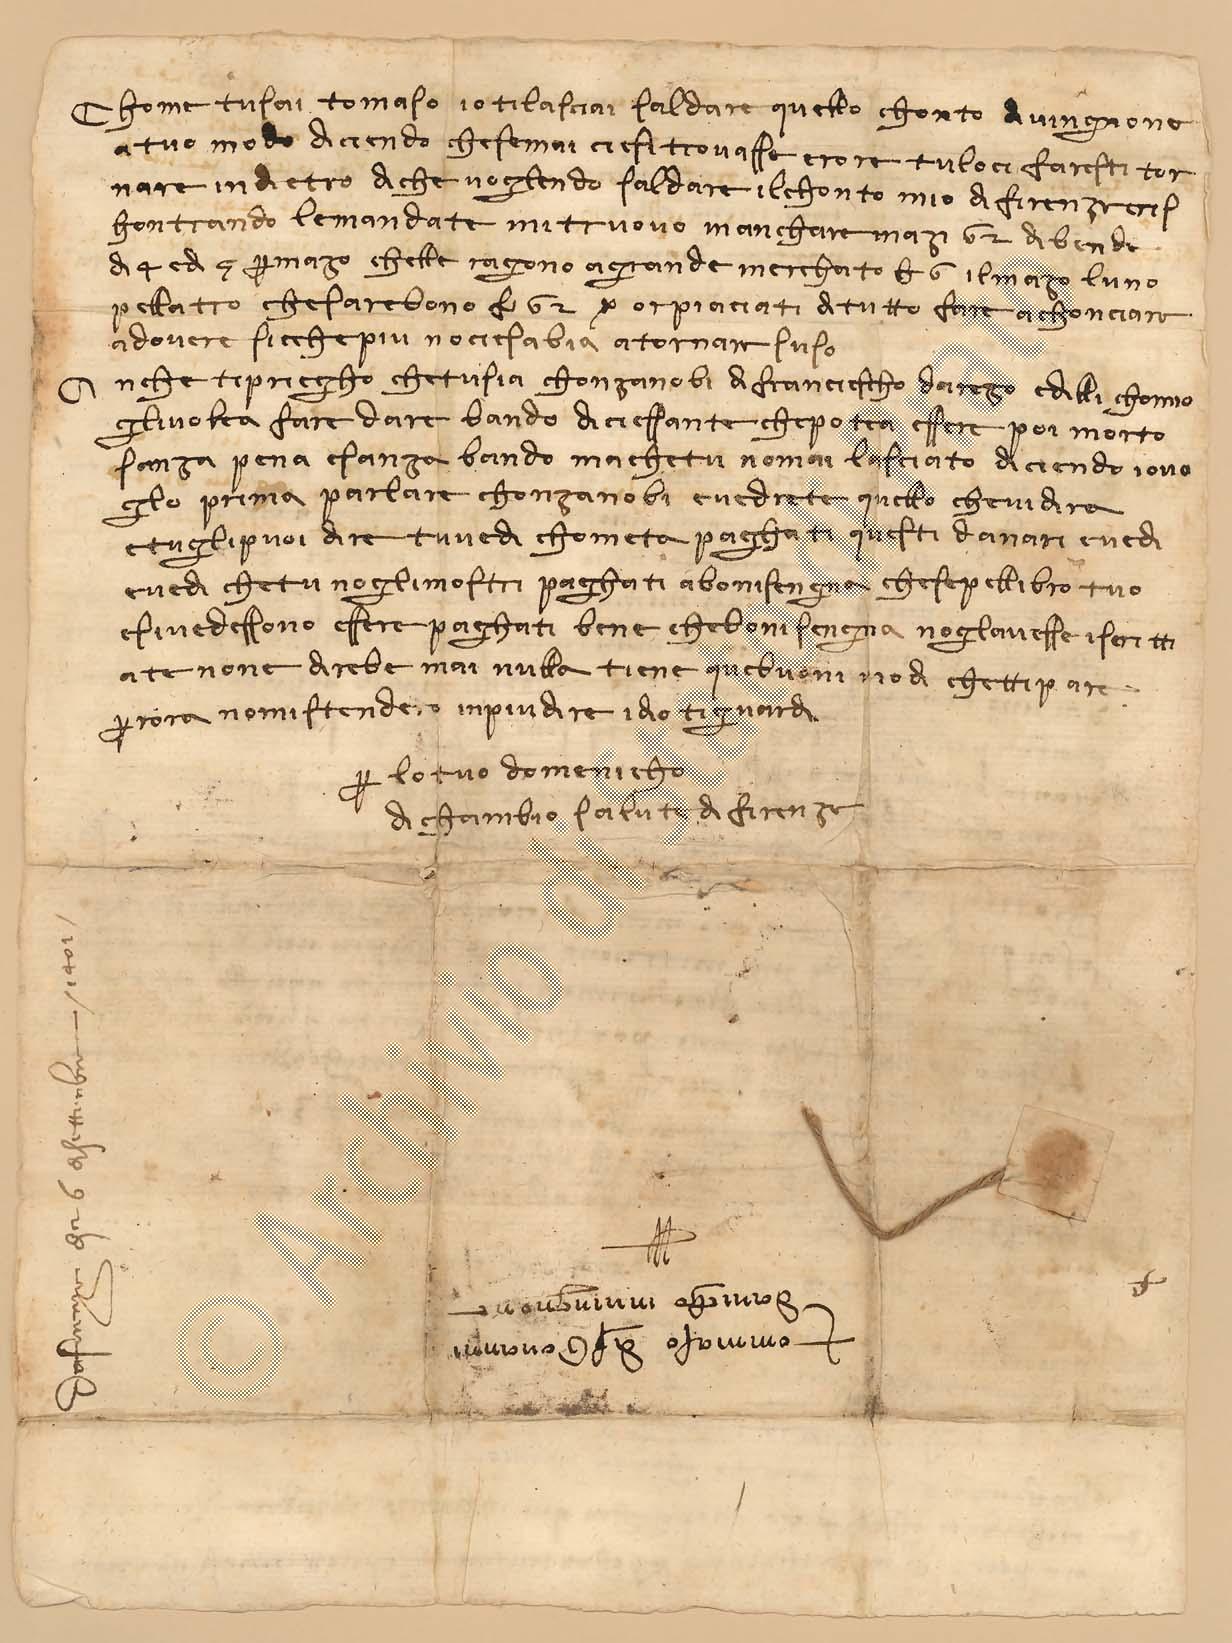 Chome tusai tomaso io tilasciai saldare quello chonto divingnone
atuo modo diciendo chesemai ciesitrovasse erore tuloci faresti tor
nare indietro diche voglendo saldare ilchonto mio difirenze eris
hontrando lemandate mitruovo manchare mazi 62 dibende
di 4 edi 5 per mazo chelle ragono agrande merchato 6 ilmazo luno
pellatro chesarebono f 62 orpiaciati ditutto fare achonciare
adovere sicchepiu nociesabia atornare suso
Anche tipriegho chetusia chonzanobi difranciescho darezo edilli chomio
glivolea fare dare bando diciessante chepotea essere poi morto
sanza pena esanza bando machetu nomai lasciato diciendo iovo
glo prima parlare chonzanobi evedrete quello chevidira
etuglipuoi dire tuvedi chometa paghati questi danari evedi
evedi chetu noglimostri paghati abonisengna chesepellibro tuo
esivedessono essere paghati bene cheboni sengna noglavesse iscritti
ate none direbe mai nulla tiene quebuoni modi chettipare
perora nomistendero inpiudire idio tiguardi
per lotuo domenicho
dichambio salute difirenze
Tommaso di ser Giovanni
Domicho in vingnone